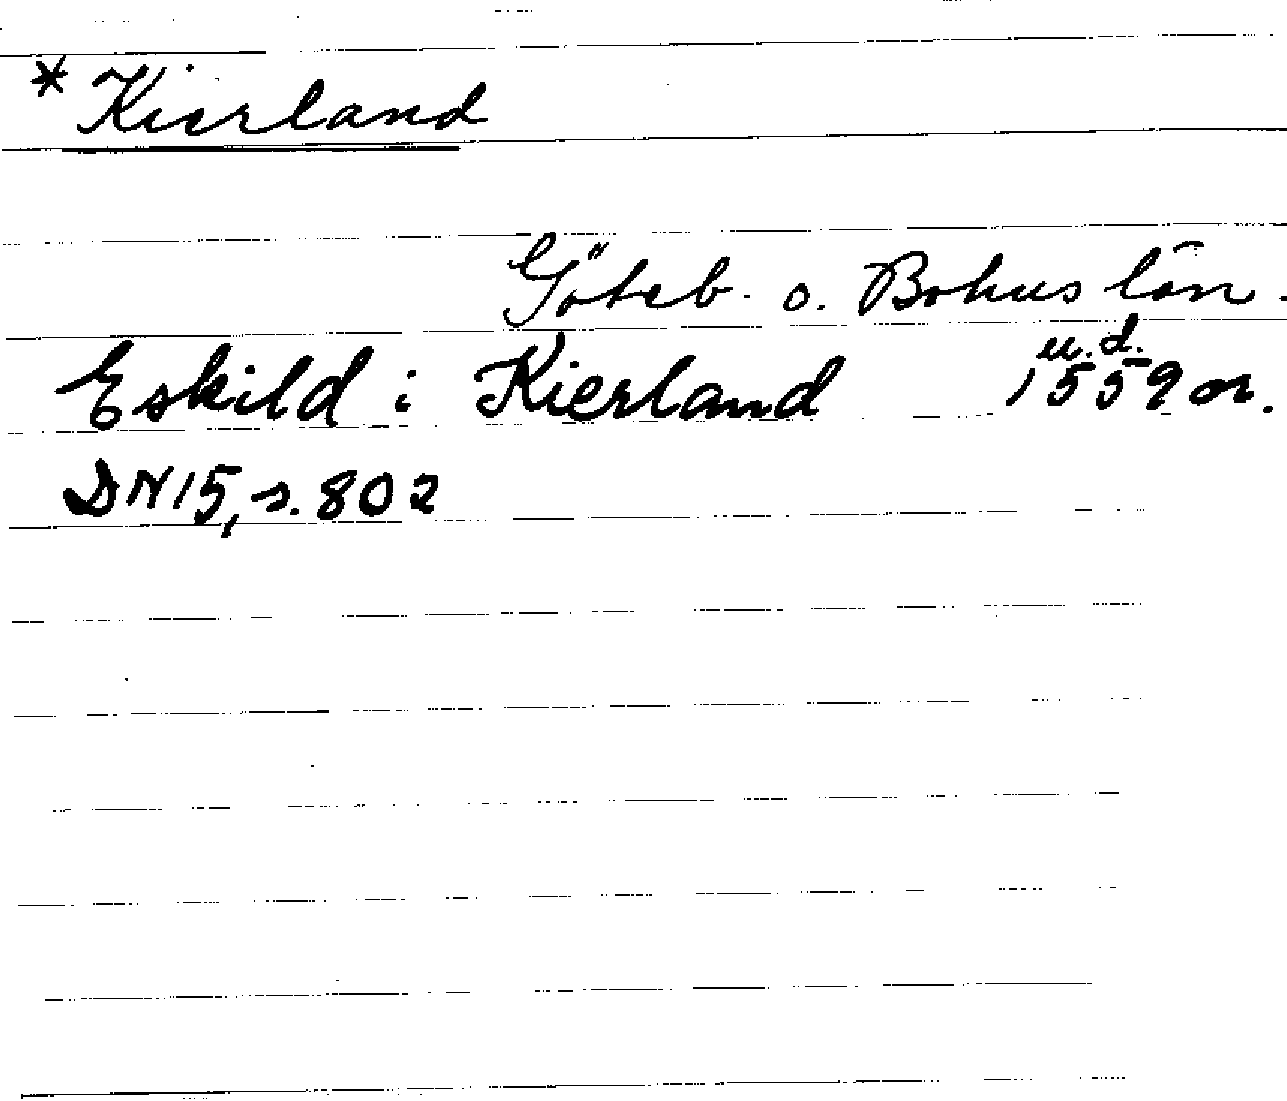 * Kierland
Göteb. o. Bohus län.
u.d.
Eskild i Kierland 1559 or.
DN 15, s. 802